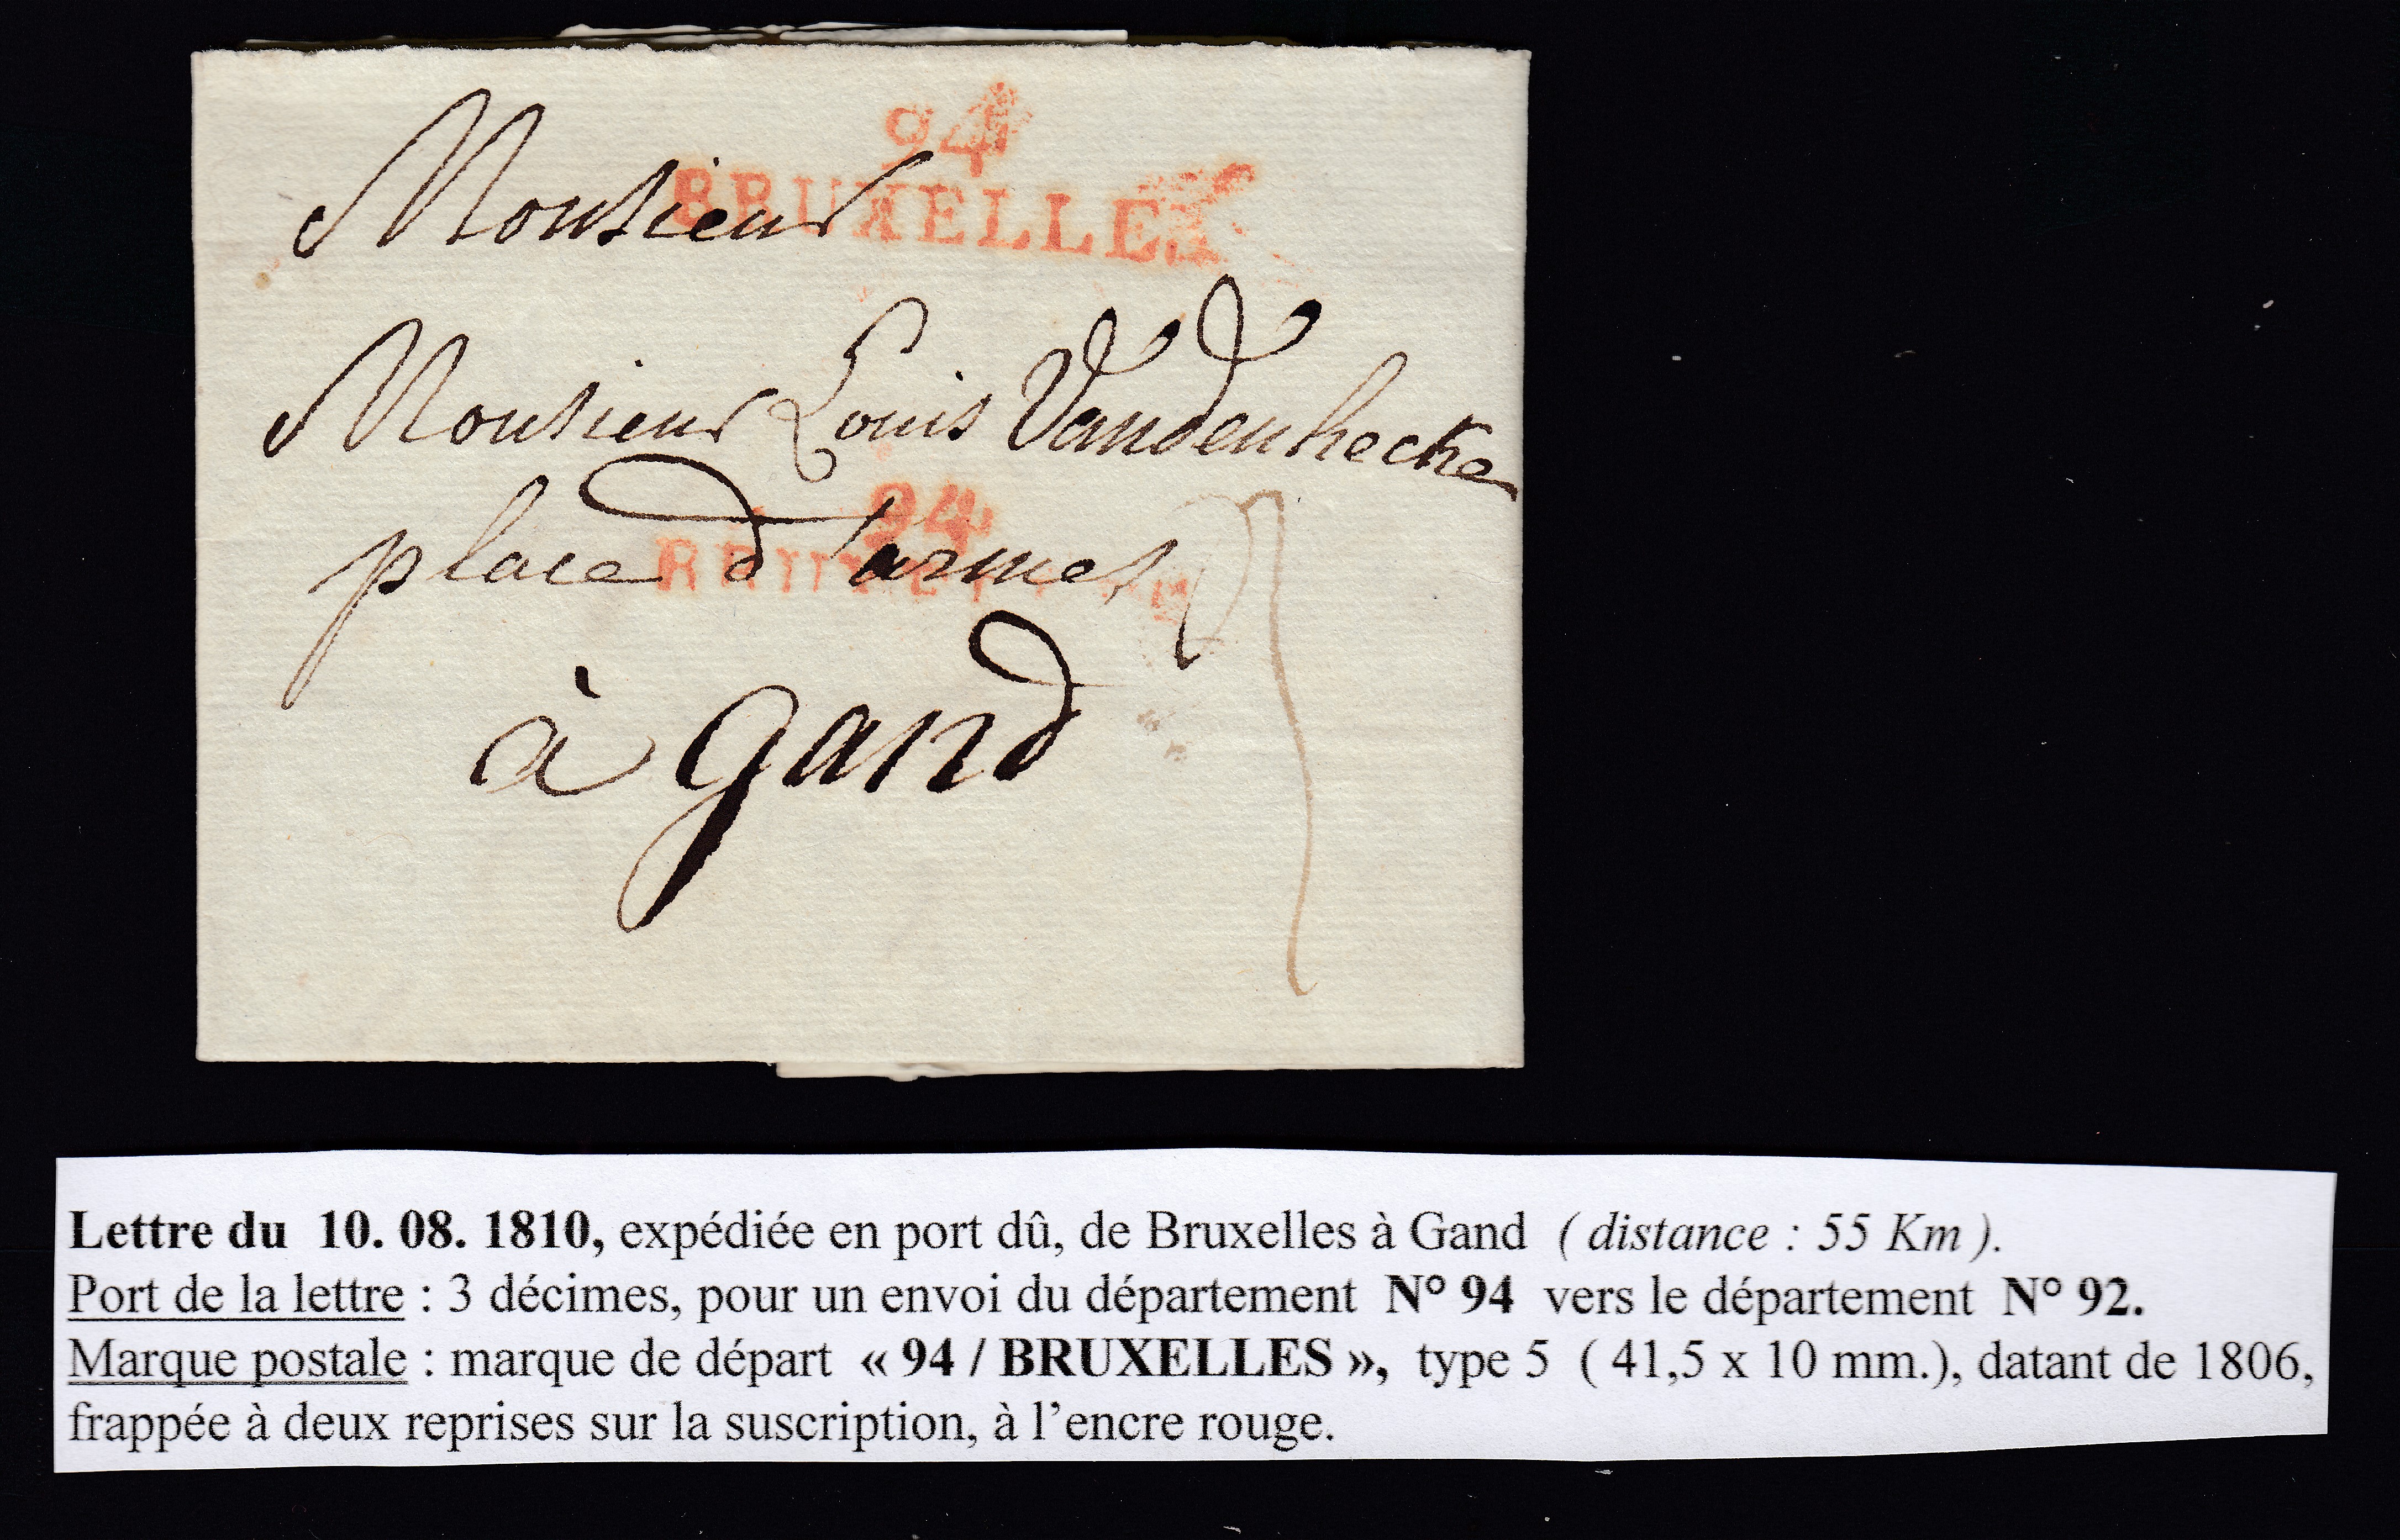 94
BRUXELLES
Monsieur
Monsieur Louis Vandenhecke
94
BRUXELLES
place d'armes
3
à gand
Lettre du 10. 08. 1810, expédiée en port dû, de Bruxelles à Gand ( distance : 55 Km ).
Port de la lettre : 3 décimes, pour un envoi du département N° 94 vers le département N° 92.
Marque postale : marque de départ « 94 / BRUXELLES », type 5 ( 41,5 x 10 mm.), datant de 1806,
frappée à deux reprises sur la suscription, à l’encre rouge.